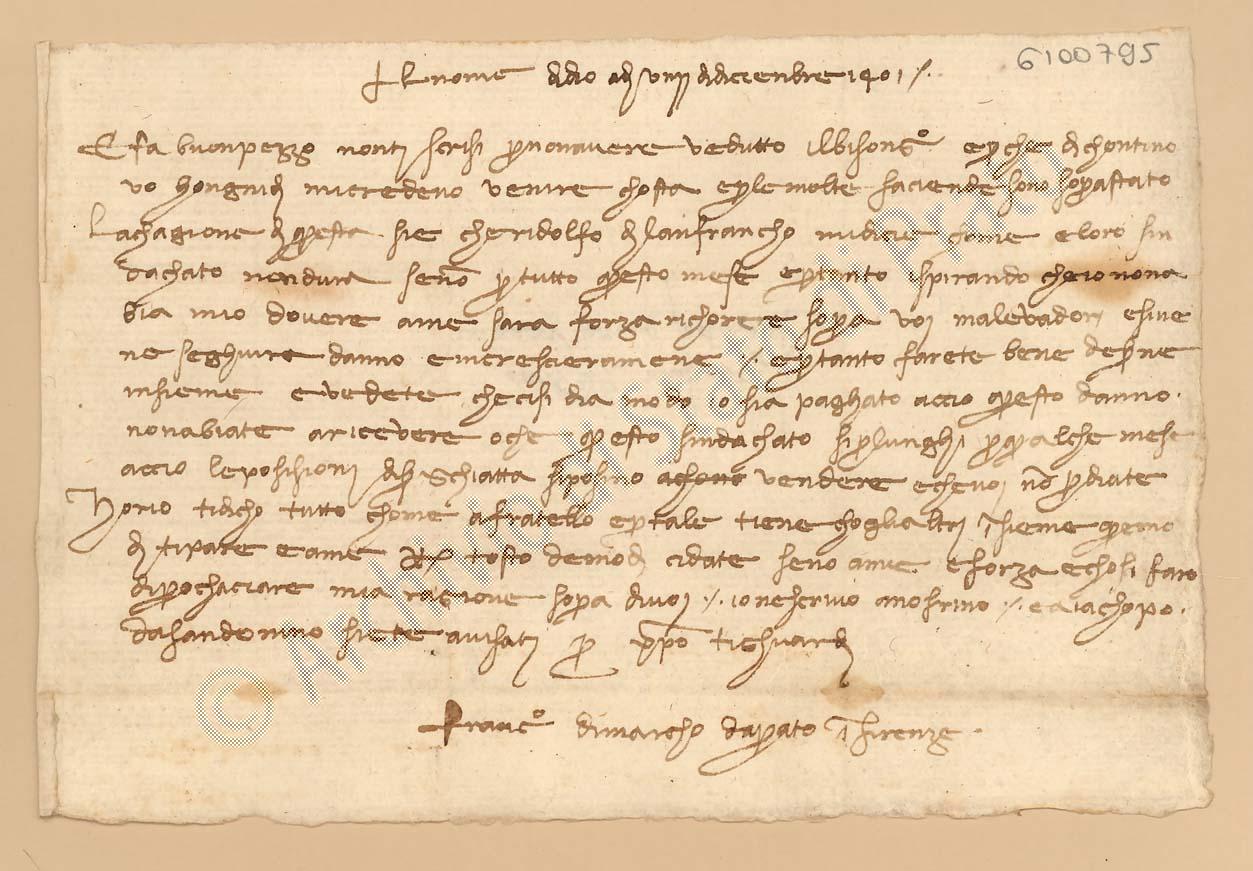 6100795
Al nome di dio adi viiij di diciembre 1401 /.
E fa buonpezzo nonti scrissi p(er) nonavere vedutto ilbisongo e p(er)che di chontino
vo hongnidi micredevo venire chosta e p(er)lemolte faciende sono sop(r)astato
Lachagione di q(u)esta sie cheridolfo di lanfrancho midicie chome eloro sin
dachato nondura seno p(er)tutto q(u)esto mese e p(er)tanto ispirando cheio nona
bia mio dovere ame sara forza richorere sop(r)a voi malevadori esine
ne seghuire danno e increscieramene /. e p(er)tanto farete bene desserne
insieme e vedete checisi dia modo o sia paghato accio q(u)esto danno
nonabiate aricevere oche q(u)esto sindachato sip(ro)lunghi p(er)q(u)alche mese
accio leposisioni di Schiatta siposino vendere echevoi no p(er)diate
Horio tidicho tutto chome afratello e p(er)tale tiene choglialtri insieme
di tirare e ame tosto demodi cidate seno amé eforza echosi faro
dip(ro)chaciare mia ragione sop(r)a divoi /. ione scrivo anofrino /. e aiachopo
dasandonino siete avisati p(er) Cristo tighuardi
Franc(esc)o dimarcho dap(r)ato in Firenze
© Archivio di Stato di Prato